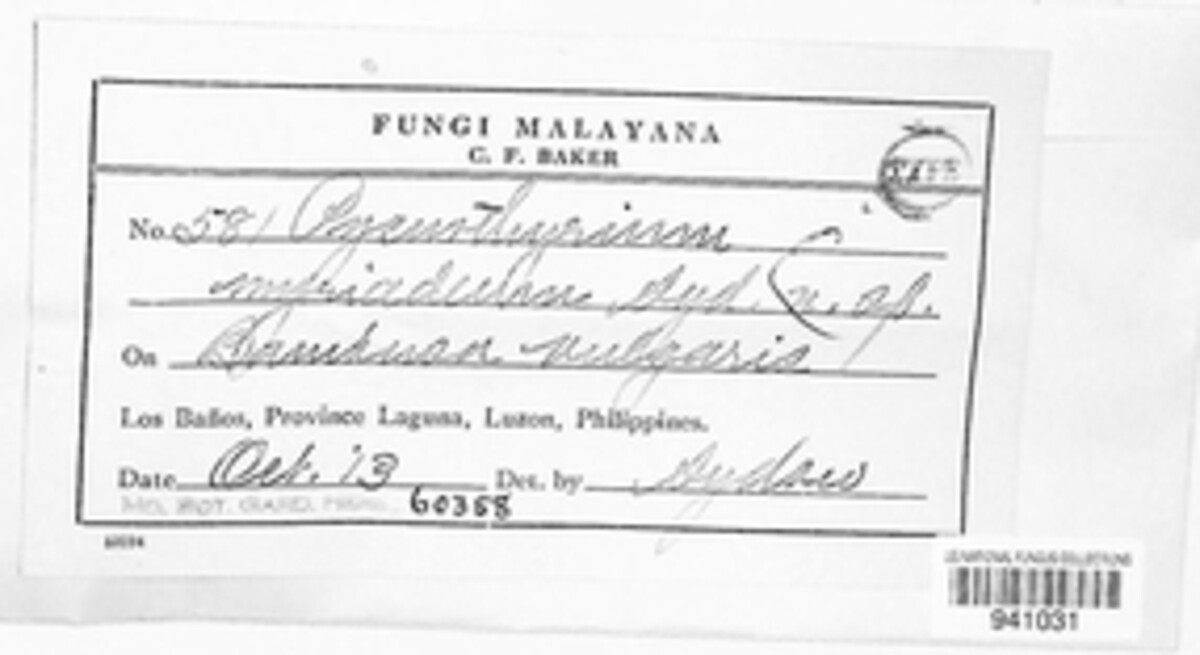 FUNGI MALAYANA
C. F. BAKER
No. 581 Pycnothyrium
Syd. n. sp.
On Bambusa vulgaris
Los Baños, Province Laguna, Luzon, Philippines.
Date Oct. '13 Det. by Sydow
MO. BOT. GARD. HERB. 60388
US NATIONAL FUNGUS COLLECTIONS
941031